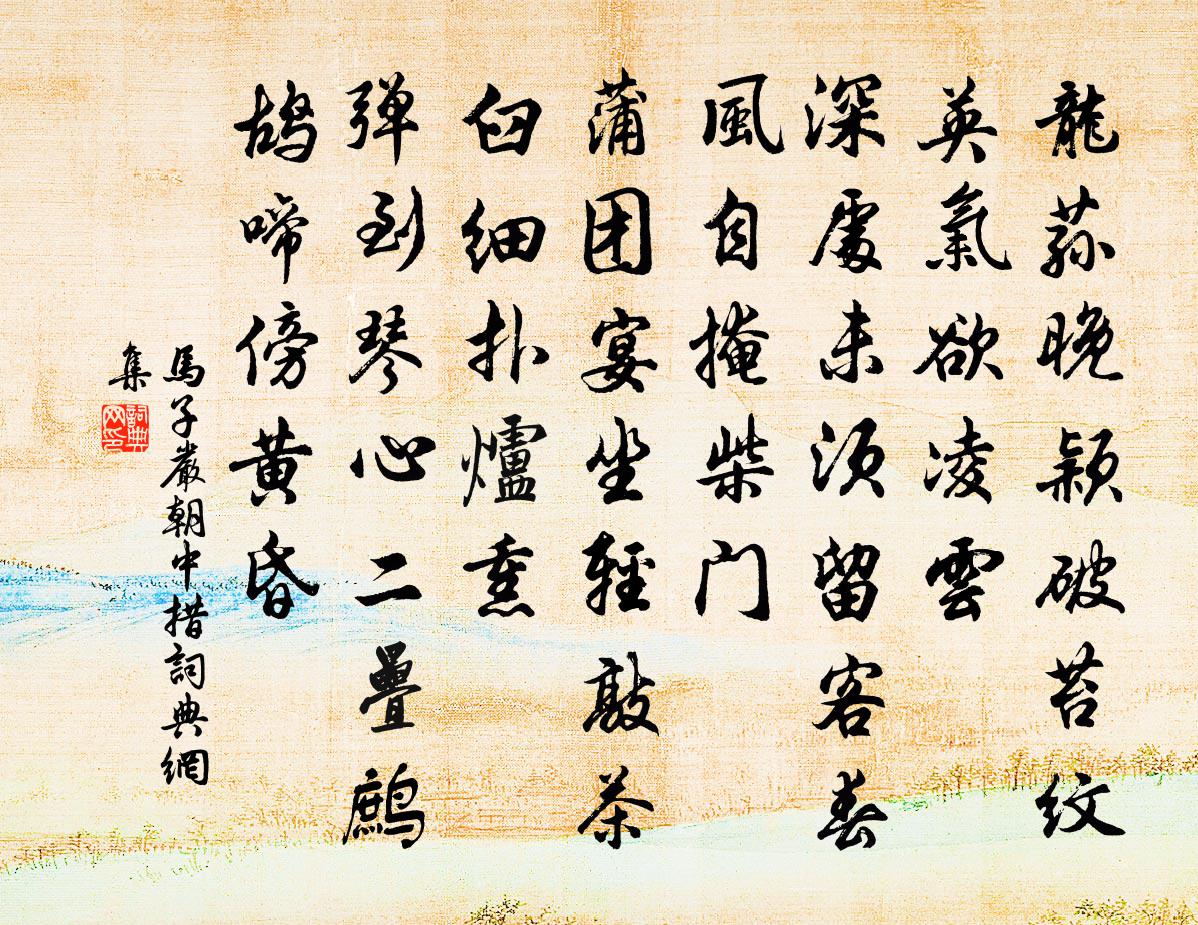 龍蓀晚穎破苔紋
英氣欲凌雲
深處未須留客春
風自掩柴门
蒲团宴坐輕敲茶
臼細扑爐熏
弹到琴心二疊鷓
鴣啼傍黄昏
馬子嚴朝中措詞典網
集
詞典
网印